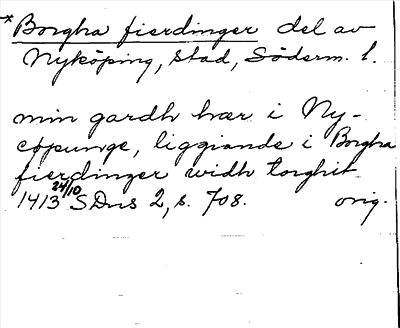 *Borgha fierdinger del av
Nyköping, stad, Söderm. l.
min gardh hær i Ny-
cøpunge, liggiande i Borgha
fierdinger widh torghit
1413 24/10 SDns 2, s. 708. orig.